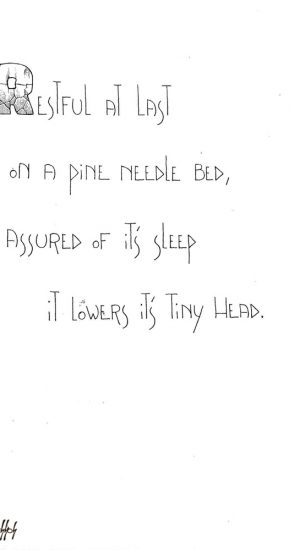 Restful at last
on a pine needle bed,
assured of it's sleep
it lowers it's tiny head.